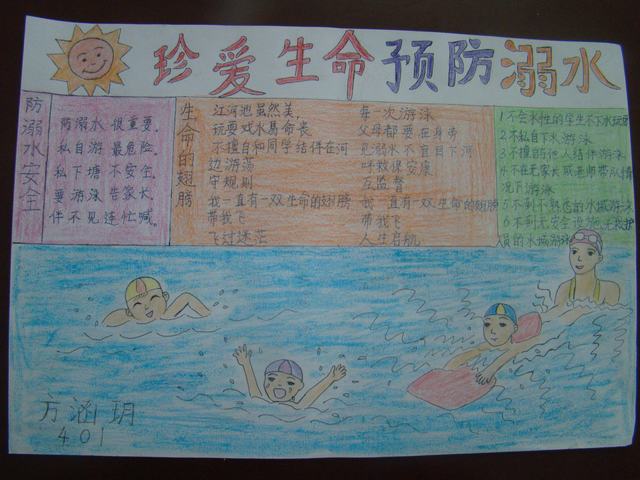 珍爱生命预防溺水
防溺水安全
防溺水 很重要,
私自游 最危险.
私下塘 不安全.
要游泳 告家长.
伴不见 连忙喊.
生命的翅膀
江河池虽然美,
玩耍戏水易命丧
不擅自和同学结伴在河
边游荡
守规则
我一直有一双生命的翅膀
带我飞
飞过迷茫
每一次游泳
父母都要在身旁
见溺水不宜目下河
呼救保安康
互监督
我一直有一双生命的翅膀
带我飞
人生有航
1不会水性的学生不下水玩耍
2不私自下水游泳
3不擅自与他人结伴游泳
4不在无家长或老师带队情
况下游泳
5不到不熟悉的水域游泳
6不到无安全设施、无救护
人员的水域游泳
方涵玥
401